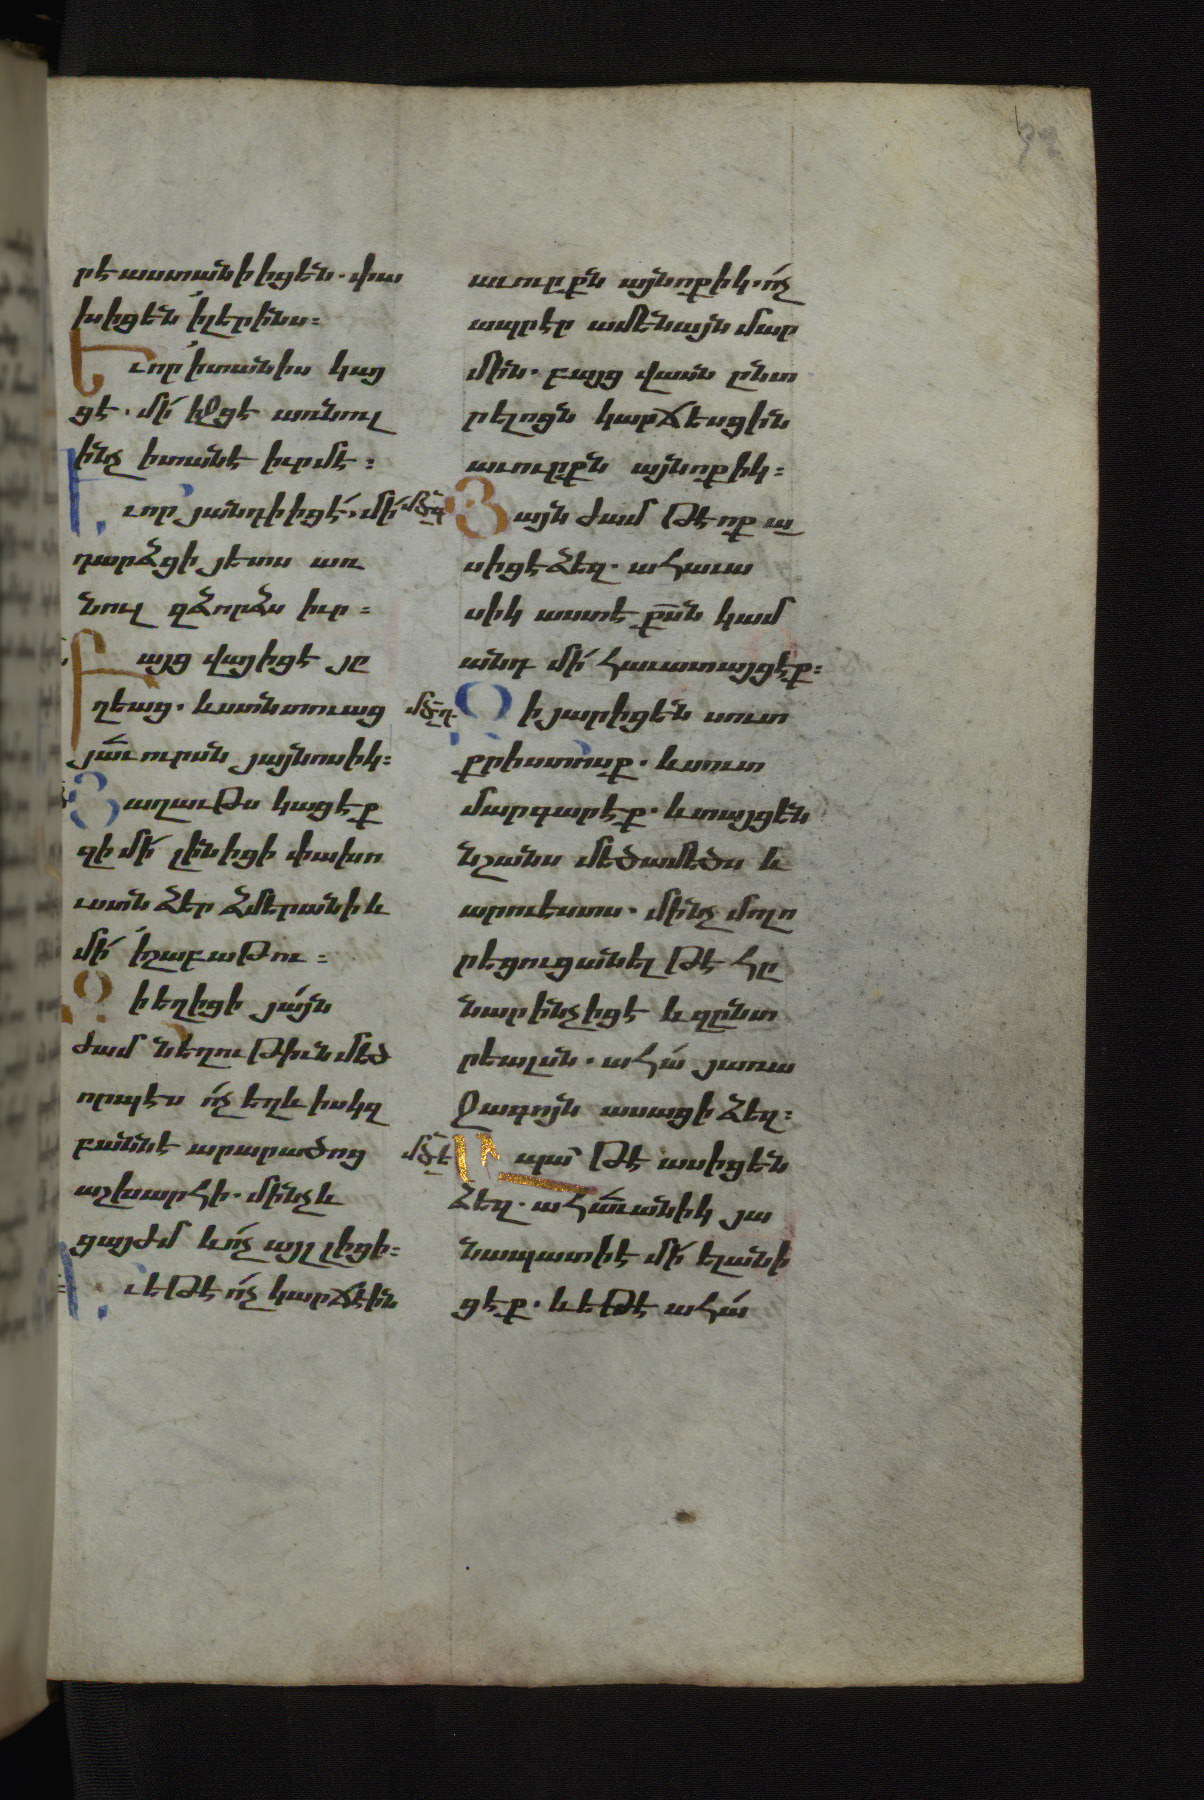 րէաստանի իցեն. փա
խիցեն ՛ի լերինս։
Եւ որ ՛ի տանիս կայ
ցէ. մի՛ իջցէ առնուլ
ինչ ի տանէ իւրմէ։
Եւ որ յանդի իցէ, մի՛
դարձցի յետս առ
նուլ զձորձս իւր։
Բայց վայ իցէ յը
ղեաց. և ստնտուաց
յա՛ւուրսն յայնոսիկ։
Յաղաւթս կացէք
զի մի՛ լինիցի փախու
ստն ձեր ձմերանի և
մի՛ ՛ի շաբաթու։
Զի եղիցի յա՛յն
ժամ նեղութիւն մեծ
որպէս ո՛չ եղև իսկզ
բաննէ արարածոց
աշխարհի. մինչև
ցայժմ և ո՛չ այլ լիցի։
Եւ եթէ ո՛չ կարճէին
աւուրքն այնոքիկ. ո՛չ
ապրէր ամենայն մար
մին. բայց վասն ընտ
րելոցն կարճեսցին
աւուրքն այնոքիկ։
Յայն ժամ թէ ոք ա
սիցէ ձեզ. ահաւա
սիկ աստէ ք̅ս̅ն կամ
անդ մի՛ հաւատայցէք։
Զի յարիցեն սուտ
քրիստոսք. և սուտ
մարգարէք. և տայցեն
նշանս մեծամեծս և
արուեստս. մինչ մոլո
րեցուցանել թէ հը
նար ինչ իցէ և զընտ
րեալսն. ահա՛ յառա
ջագոյն ասացի ձեզ։
Ապա՛ թէ ասիցեն
ձեզ. ահա՛ւանիկ յա
նապատի է մի՛ ելանի
ցէք. և եթէ ահա՛